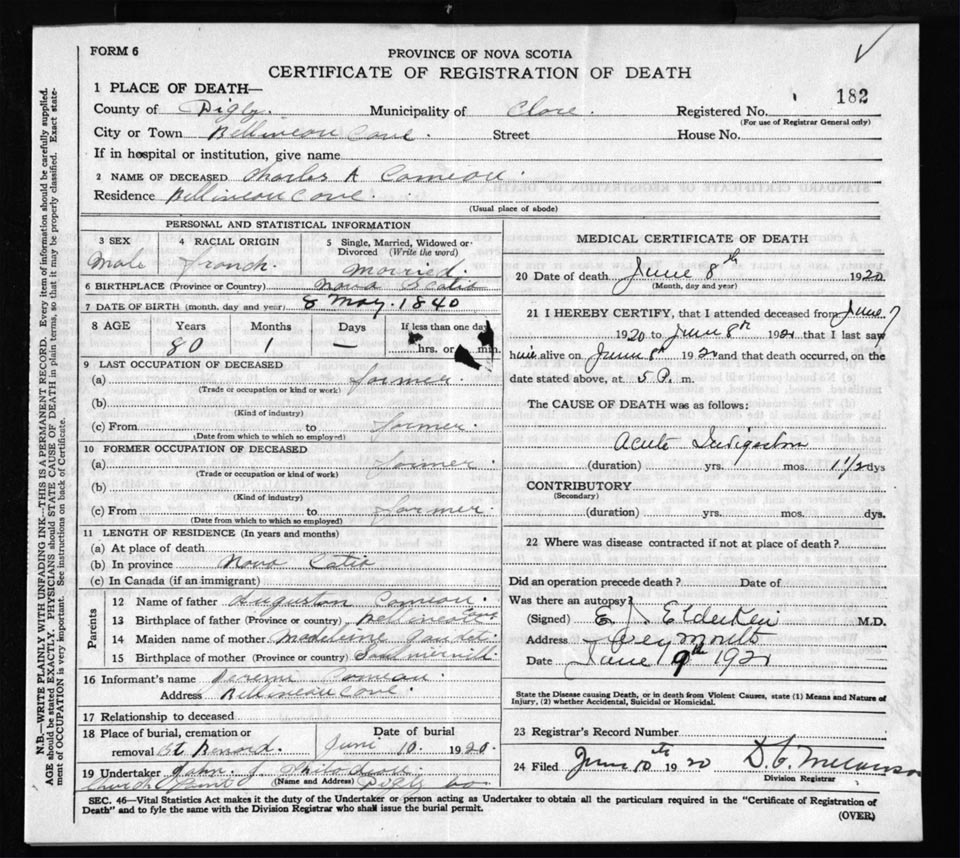 FORM 6
PROVINCE OF NOVA SCOTIA
CERTIFICATE OF REGISTRATION OF DEATH
182
1 PLACE OF DEATH—
County of Digby. Municipality of Clare. Registered No.
(For use of Registrar General only)
City or Town Bellineau Cove. Street House No.
If in hospital or institution, give name
2 NAME OF DECEASED Charles A Comeau.
Residence Bellineau Cove.
(Usual place of abode)
PERSONAL AND STATISTICAL INFORMATION
3 SEX 4 RACIAL ORIGIN 5 Single, Married, Widowed or Divorced (Write the word)
Male french. Married.
6 BIRTHPLACE (Province or Country) Nova Scotia
7 DATE OF BIRTH (month, day and year) 8 May. 1840
8 AGE Years Months Days If less than one day
80 1 — hrs. or min.
9 LAST OCCUPATION OF DECEASED
(a) farmer.
(Trade or occupation or kind of work)
(b)
(Kind of industry)
(c) From to farmer.
(Date from which to which so employed)
10 FORMER OCCUPATION OF DECEASED
(a) farmer.
(Trade or occupation or kind of work)
(b)
(Kind of industry)
(c) From to farmer.
(Date from which to which so employed)
11 LENGTH OF RESIDENCE (In years and months)
(a) At place of death
(b) In province Nova Catia
(c) In Canada (if an immigrant)
Parents
12 Name of father Comeau.
13 Birthplace of father (Province or country) Bellineau Cove
14 Maiden name of mother Madeleine Gaudet
15 Birthplace of mother (Province or country)
16 Informant's name Comeau.
Address Bellineau Cove
17 Relationship to deceased
18 Place of burial, cremation or removal Date of burial
St Benard. June 10. 1920.
19 Undertaker John J
(Name and Address)
Church Point Digby Co
MEDICAL CERTIFICATE OF DEATH
20 Date of death June 8th 1920
(Month, day and year)
21 I HEREBY CERTIFY, that I attended deceased from June 7
1920 to June 8th 1920 that I last saw
him alive on June 8th 1920 and that death occurred, on the
date stated above, at 5 P. m.
The CAUSE OF DEATH was as follows:
Acute Indigestion
(duration) yrs. mos. 1 1/2 dys
CONTRIBUTORY
(Secondary)
(duration) yrs. mos. dys.
22 Where was disease contracted if not at place of death?
Did an operation precede death? Date of
Was there an autopsy?
(Signed) E. J. Elderkin M.D.
Address Weymouth
Date June 9th 1920
State the Disease causing Death, or in death from Violent Causes, state (1) Means and Nature of
Injury, (2) whether Accidental, Suicidal or Homicidal.
23 Registrar's Record Number
24 Filed June 10th 1920 D. C.
Division Registrar
SEC. 46—Vital Statistics Act makes it the duty of the Undertaker or person acting as Undertaker to obtain all the particulars required in the "Certificate of Registration of
Death" and to fyle the same with the Division Registrar who shall issue the burial permit.
(OVER)
N.B.—WRITE PLAINLY WITH UNFADING INK—THIS IS A PERMANENT RECORD. Every item of information should be carefully supplied.
AGE should be stated EXACTLY. PHYSICIANS should STATE CAUSE OF DEATH in plain terms, so that it may be properly classified. Exact state-
ment of OCCUPATION is very important. See instructions on back of Certificate.